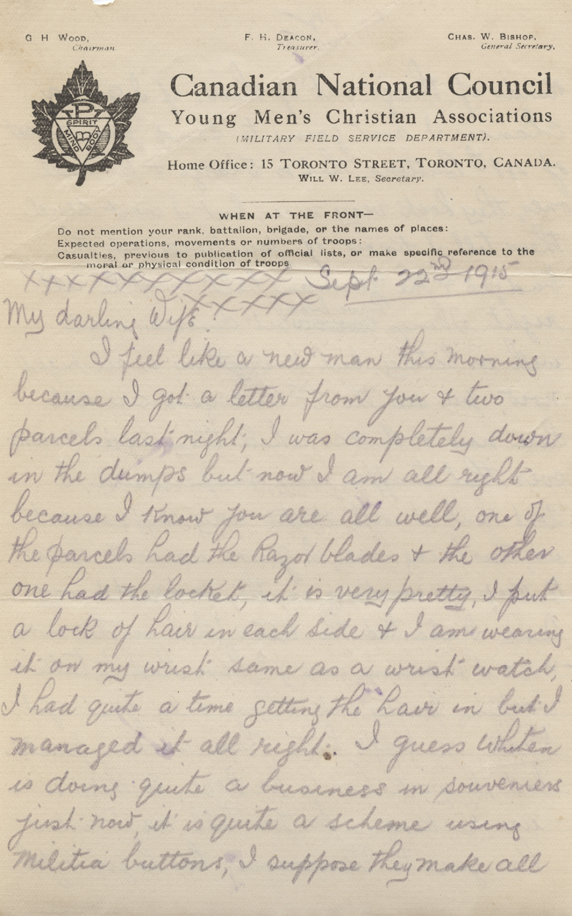 G H WOOD,
Chairman.
F. H. DEACON,
Treasurer.
CHAS. W. BISHOP,
General Secretary.
SPIRIT
MIND
BODY
Canadian National Council
Young Men's Christian Associations
(MILITARY FIELD SERVICE DEPARTMENT).
Home Office: 15 TORONTO STREET, TORONTO, CANADA.
WILL W. LEE, Secretary.
WHEN AT THE FRONT—
Do not mention your rank, battalion, brigade, or the names of places:
Expected operations, movements or numbers of troops:
Casualties, previous to publication of official lists, or make specific reference to the
moral or physical condition of troops
XXXXXXXXXXX Sept 22nd 1915
XXXXXX
My darling Wife!
I feel like a new man this morning
because I got a letter from you & two
parcels last night, I was completely down
in the dumps but now I am all right
because I know you are all well, one of
the parcels had the Razor blades & the other
one had the locket, it is very pretty, I put
a lock of hair in each side & I am wearing
it on my wrist same as a wrist watch,
I had quite a time getting the hair in but I
managed it all right. I guess Whiten
is doing quite a business in souveniers
just now, it is quite a scheme using
Militia buttons, I suppose they make all